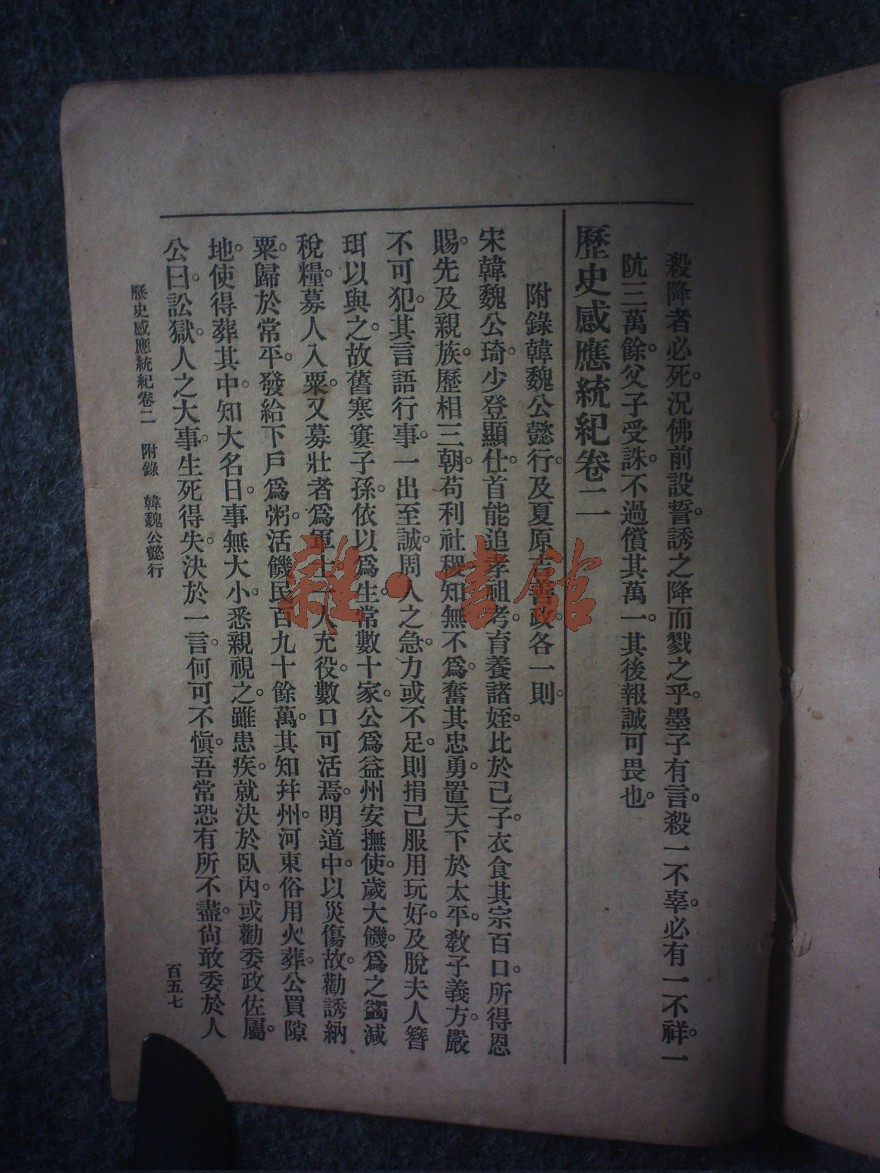 殺降者必死。況佛前設誓誘之降而戮之乎。墨子有言。殺一不辜。必有一不祥。一
阬三萬餘。父子受誅。不過償其萬一。其後報誠可畏也。
歷史感應統紀卷二
附錄韓魏公懿行及夏原吉善政各一則。
宋韓魏公琦。少登顯仕。首能追孝祖考。育養諸姪。比於己子。衣食其宗百口。所得恩
賜。先及親族。歷相三朝。苟利社稷。知無不爲。奮其忠勇。置天下於太平。敎子義方。嚴
不可犯。其言語行事。一出至誠。周人之急。力或不足。則捐己服用玩好。及脫夫人簪
珥以與之。故舊寒寠子孫。依以爲生。常數十家。公爲益州安撫使。歲大饑。爲之蠲減
稅糧。募人入粟。又募壯者爲軍。一人充役。數口可活焉。明道中。以災傷故。勸誘納
粟。歸於常平。發給下戶爲粥。活饑民百九十餘萬。其知幷州。河東俗用火葬。公買隙
地。使得葬其中。知大名日。事無大小。悉親視之。雖患疾。就決於臥內。或勸委政佐屬。
公曰。訟獄。人之大事。生死得失。決於一言。何可不愼。吾常恐有所不盡。尙敢委於人
歷史感應統紀卷二 附錄 韓魏公懿行
百五七
雜·書館